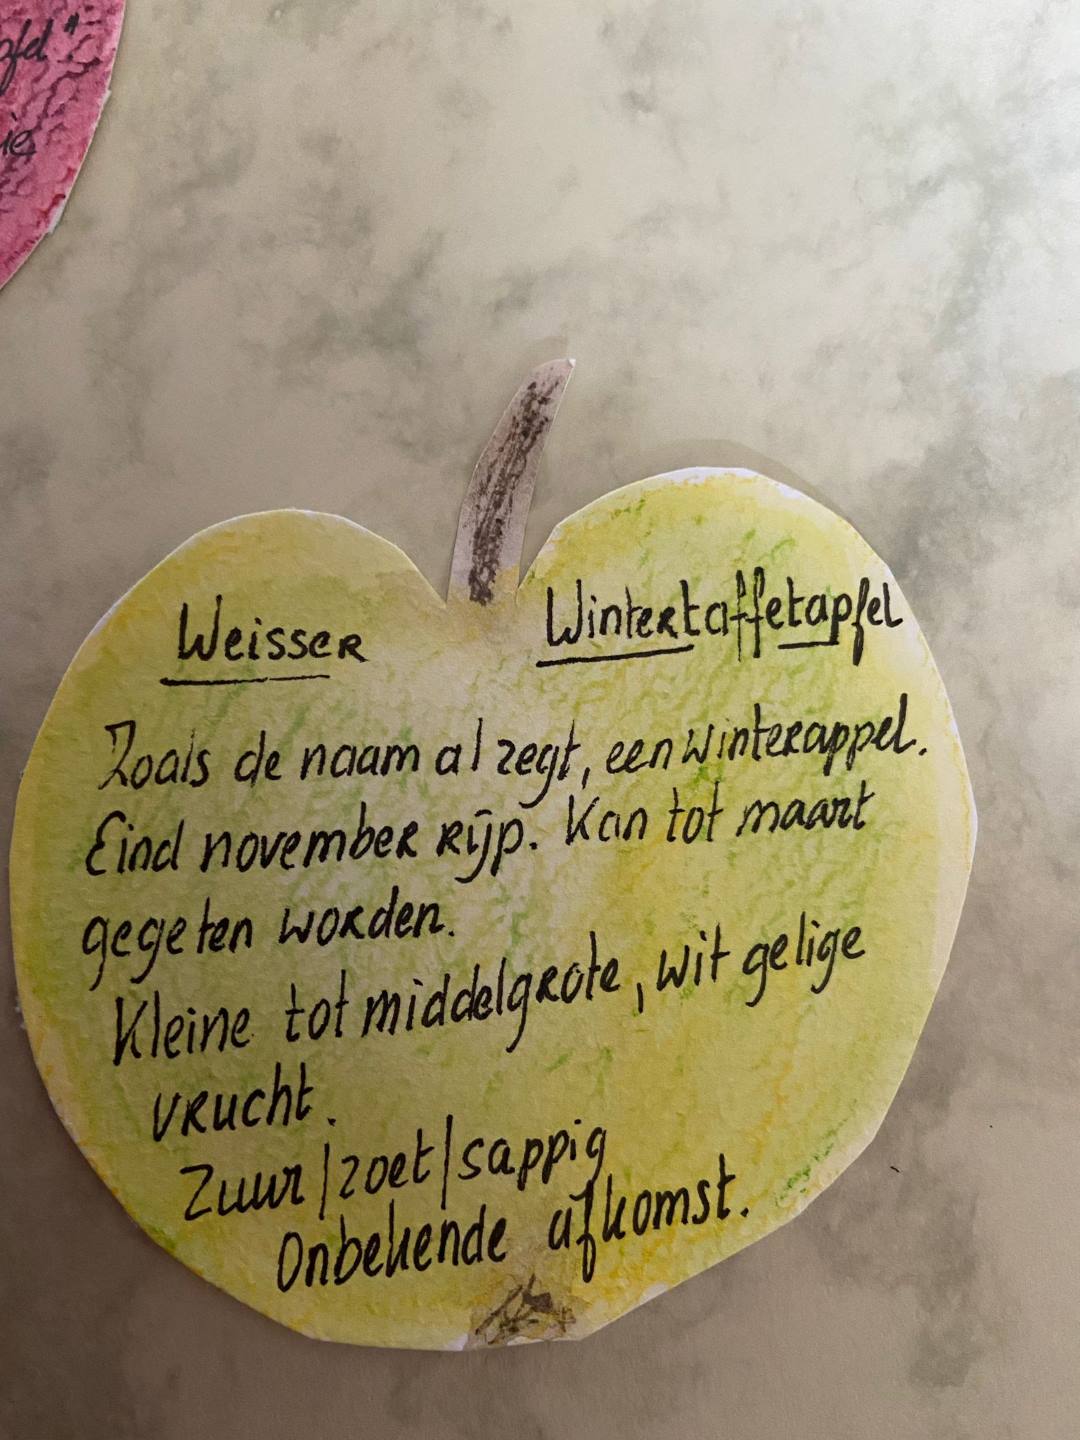 ie
Weisser Wintertaffetapfel
Zoals de naam al zegt, een winterappel.
Eind november rijp. Kan tot maart
gegeten worden.
Kleine tot middelgrote, wit gelige
vrucht.
Zuur/zoet/sappig
Onbekende afkomst.